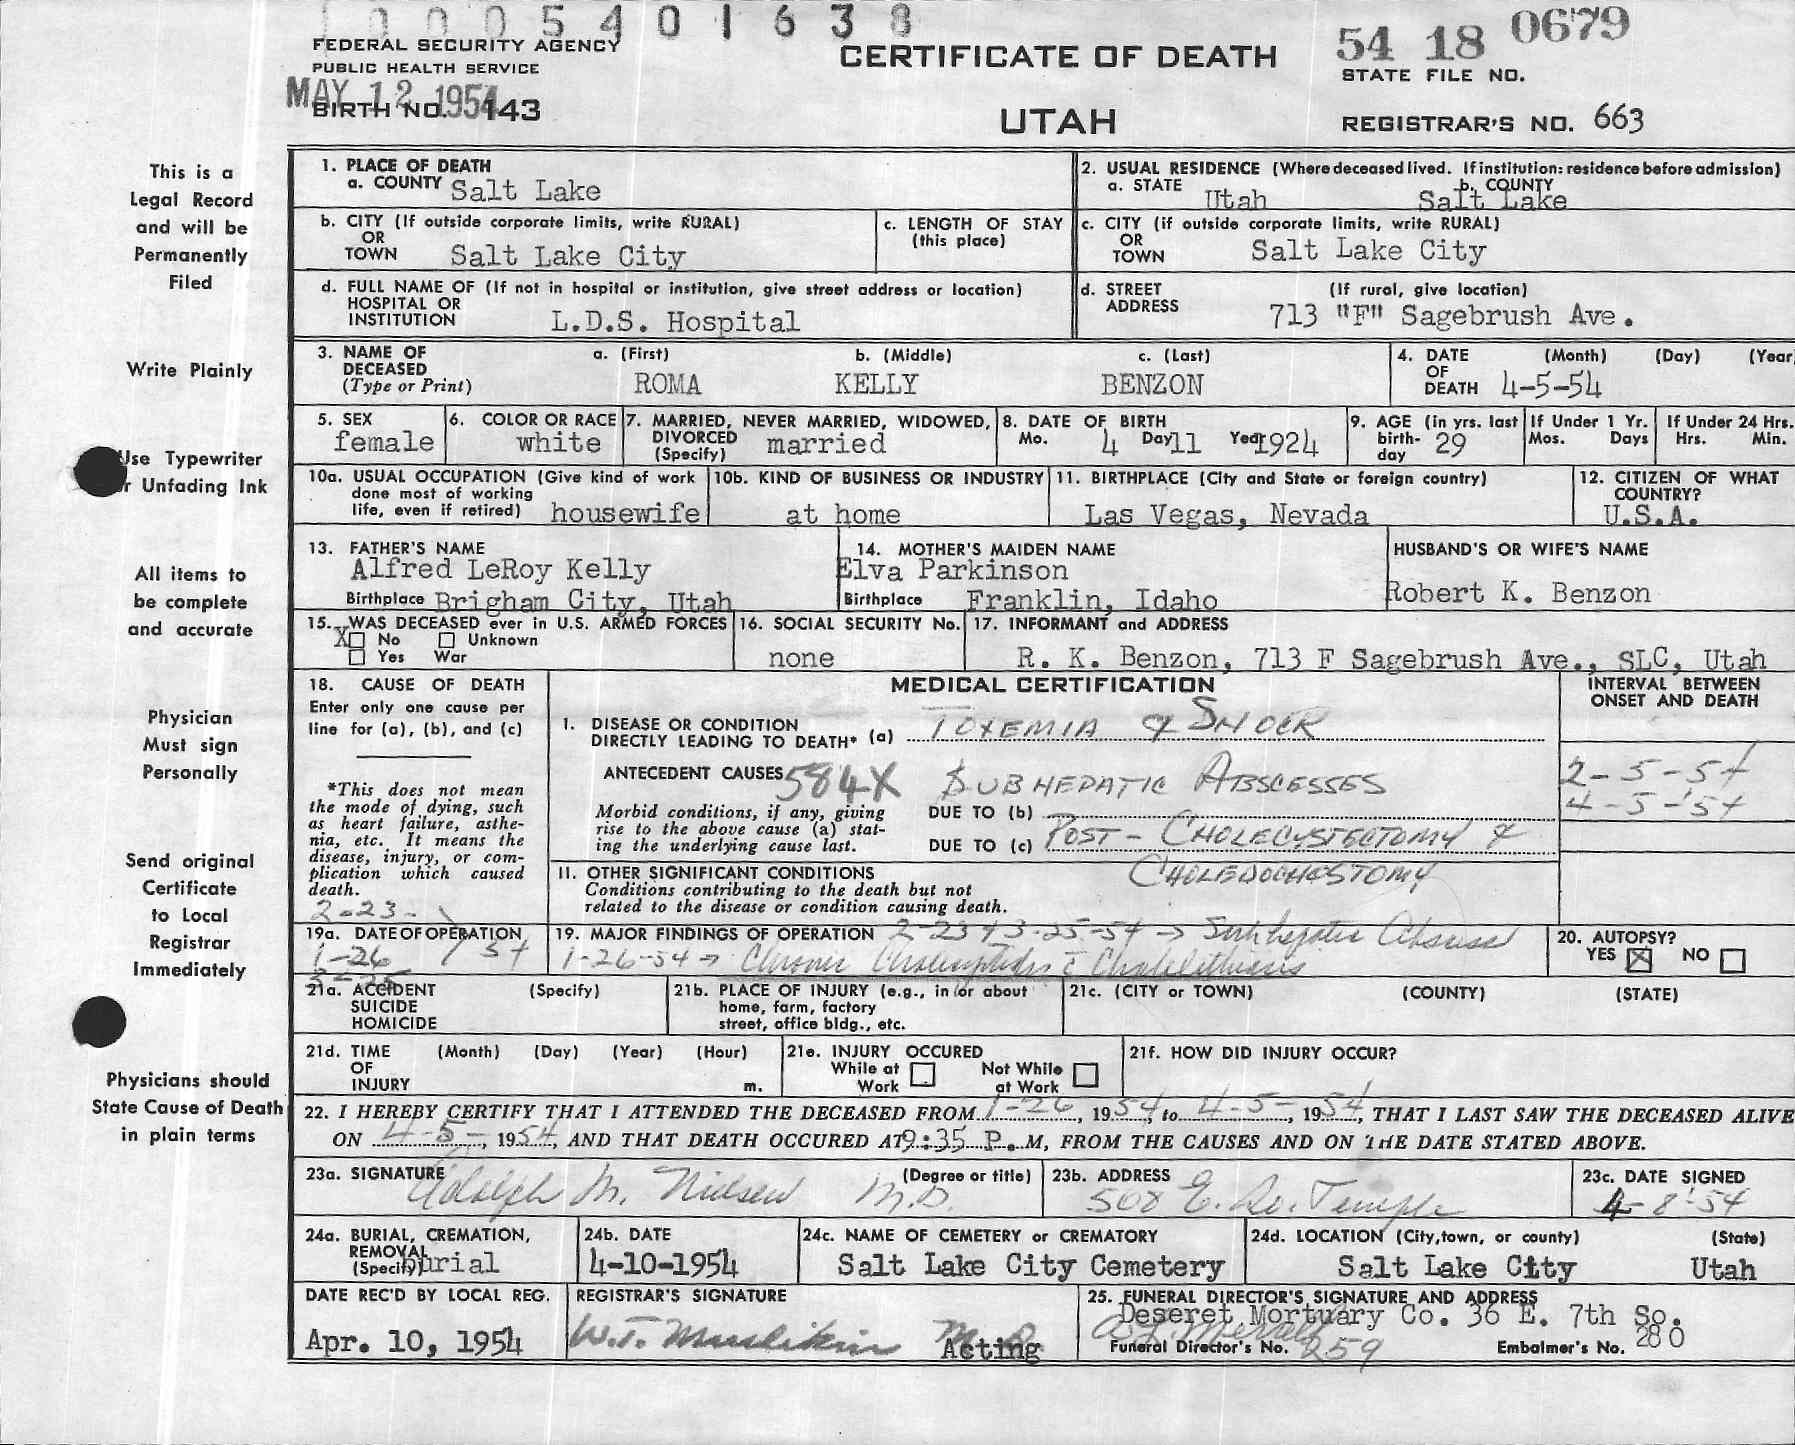 1 0 0 0 5 4 0 1 6 3 8
FEDERAL SECURITY AGENCY
PUBLIC HEALTH SERVICE
MAY 12 1954
BIRTH NO. 143
CERTIFICATE OF DEATH
UTAH
54 18 0679
STATE FILE NO.
REGISTRAR'S NO. 663
This is a
Legal Record
and will be
Permanently
Filed
Write Plainly
Use Typewriter
or Unfading Ink
All items to
be complete
and accurate
Physician
Must sign
Personally
Send original
Certificate
to Local
Registrar
Immediately
Physicians should
State Cause of Death
in plain terms
1. PLACE OF DEATH
a. COUNTY Salt Lake
2. USUAL RESIDENCE (Where deceased lived. If institution: residence before admission)
a. STATE Utah b. COUNTY Salt Lake
b. CITY (If outside corporate limits, write RURAL)
OR
TOWN Salt Lake City
c. LENGTH OF STAY
(this place)
c. CITY (if outside corporate limits, write RURAL)
OR
TOWN Salt Lake City
d. FULL NAME OF (If not in hospital or institution, give street address or location)
HOSPITAL OR
INSTITUTION L.D.S. Hospital
d. STREET (If rural, give location)
ADDRESS 713 "F" Sagebrush Ave.
3. NAME OF a. (First) b. (Middle) c. (Last)
DECEASED
(Type or Print) ROMA KELLY BENZON
4. DATE (Month) (Day) (Year
OF
DEATH 4-5-54
5. SEX
female
6. COLOR OR RACE
white
7. MARRIED, NEVER MARRIED, WIDOWED,
DIVORCED married
(Specify)
8. DATE OF BIRTH
Mo. 4 Day 11 Year 1924
9. AGE (in yrs. last
birth- 29
day
If Under 1 Yr.
Mos. Days
If Under 24 Hrs.
Hrs. Min.
10a. USUAL OCCUPATION (Give kind of work
done most of working
life, even if retired) housewife
10b. KIND OF BUSINESS OR INDUSTRY
at home
11. BIRTHPLACE (City and State or foreign country)
Las Vegas, Nevada
12. CITIZEN OF WHAT
COUNTRY?
U.S.A.
13. FATHER'S NAME
Alfred LeRoy Kelly
Birthplace Brigham City, Utah
14. MOTHER'S MAIDEN NAME
Elva Parkinson
Birthplace Franklin, Idaho
HUSBAND'S OR WIFE'S NAME
Robert K. Benzon
15. WAS DECEASED ever in U.S. ARMED FORCES
X No Unknown
Yes War
16. SOCIAL SECURITY No.
none
17. INFORMANT and ADDRESS
R. K. Benzon, 713 F Sagebrush Ave., SLC, Utah
18. CAUSE OF DEATH
Enter only one cause per
line for (a), (b), and (c)
*This does not mean
the mode of dying, such
as heart failure, asthe-
nia, etc. It means the
disease, injury, or com-
plication which caused
death.
MEDICAL CERTIFICATION
INTERVAL BETWEEN
ONSET AND DEATH
1. DISEASE OR CONDITION
DIRECTLY LEADING TO DEATH* (a) TOXEMIA & SHOCK
ANTECEDENT CAUSES 584X SUBHEPATIC ABSCESSES
2-5-54
4-5-54
Morbid conditions, if any, giving
rise to the above cause (a) stat-
ing the underlying cause last.
DUE TO (b)
DUE TO (c) POST-CHOLECYSTECTOMY &
CHOLEDOCHOSTOMY
11. OTHER SIGNIFICANT CONDITIONS
Conditions contributing to the death but not
related to the disease or condition causing death.
2-23-
19a. DATE OF OPERATION
1-26 54
3-25
19. MAJOR FINDINGS OF OPERATION 2-23 & 3-25-54 → Subhepatic Abscess
1-26-54 → Chronic Cholecystitis c Cholelithiasis
20. AUTOPSY?
YES X NO
21a. ACCIDENT (Specify)
SUICIDE
HOMICIDE
21b. PLACE OF INJURY (e.g., in or about
home, farm, factory
street, office bldg., etc.
21c. (CITY or TOWN) (COUNTY) (STATE)
21d. TIME (Month) (Day) (Year) (Hour)
OF
INJURY m.
21e. INJURY OCCURED
While at Not While
Work at Work
21f. HOW DID INJURY OCCUR?
22. I HEREBY CERTIFY THAT I ATTENDED THE DECEASED FROM 1-26, 1954, to 4-5-, 1954, THAT I LAST SAW THE DECEASED ALIVE
ON 4-5-, 1954, AND THAT DEATH OCCURED AT 9:35 P. M, FROM THE CAUSES AND ON THE DATE STATED ABOVE.
23a. SIGNATURE (Degree or title)
Adolph M. Nielsen M.D.
23b. ADDRESS
508 E. So. Temple
23c. DATE SIGNED
4-8-54
24a. BURIAL, CREMATION,
REMOVAL
(Specify) burial
24b. DATE
4-10-1954
24c. NAME OF CEMETERY or CREMATORY
Salt Lake City Cemetery
24d. LOCATION (City, town, or county) (State)
Salt Lake City Utah
DATE REC'D BY LOCAL REG.
Apr. 10, 1954
REGISTRAR'S SIGNATURE
W.T. M.D.
Acting
25. FUNERAL DIRECTOR'S SIGNATURE AND ADDRESS
Deseret Mortuary Co. 36 E. 7th So.
Funeral Director's No. 259 Embalmer's No. 280